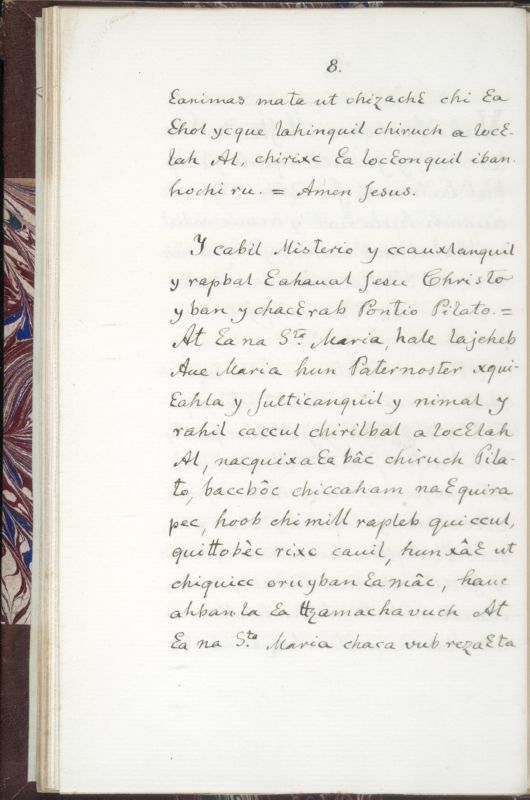 8.
Ɛanimas mata ut chizachƐ chi Ɛa
Ɛhol ycque lahinquil chiruch a locƐ-
lah Al, chirixc Ɛa locƐonquil iban
hochi ru. = Amen Jesus.
Y cabil Misterio y ccauxlanquil
y rapbal Ɛahaual Jesu Christo
y ban y chacƐrab Pontio Pilato. =
At Ɛa na Sta. Maria, hale lajcheb
Aue Maria hun Paternoster xqui-
Ɛahla y sulticanquil y nimal y
rahil caccul chirilbal a locƐlah
Al, nacquixaƐa bâc chiruch Pila-
to, baccbôc chiccaham naƐquira
pec, hoob chi mill rapleb quiccul,
quittobèc rixc cauil, hun xâƐ ut
chiquicc oruyban Ɛa mâc, haue
ahban la Ɛa tzamachavuch At
Ɛa na Sta. Maria chaca vub rezaƐta